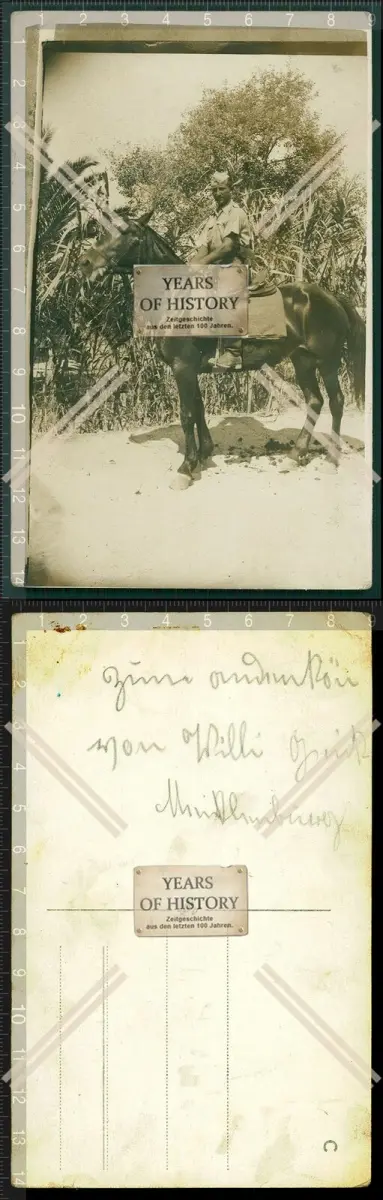 1 2 3 4 5 6 7 8 9
2
3
4
5
6
7
8
9
10
11
12
13
14
YEARS
OF HISTORY
Zeitgeschichte
aus den letzten 100 Jahren.
1 2 3 4 5 6 7 8 9
2
3
4
5
6
7
8
9
10
11
12
13
14
Zum andenken
von Willi
YEARS
OF HISTORY
Zeitgeschichte
aus den letzten 100 Jahren.
C